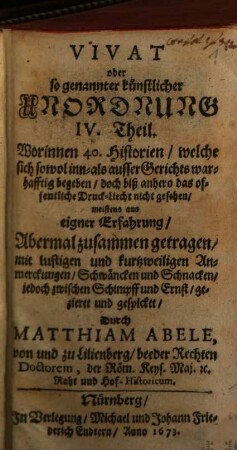 VIVAT
oder
so genannter künstlicher
UNORDNUNG
IV. Theil.
Worinnen 40. Historien / welche
sich sowol inn- als ausser Gerichts war-
hafftig begeben / doch biß anhero das of-
fentliche Druck-liecht nicht gesehen /
meistens aus
eigner Erfahrung /
Abermal zusammen getragen /
mit lustigen und kurtzweiligen An-
merckungen / Schwäncken und Schnacken /
jedoch zwischen Schimpff und Ernst / ge-
zieret und gespicket /
Durch
MATTHIAM ABELE,
von und zu Lilienberg / beeder Rechten
Doctorem, der Röm. Keys. Maj. ꝛc.
Raht und Hof-Historicum.
Nürnberg /
In Verlegung / Michael und Johann Frie-
derich Endtern / Anno 1673.